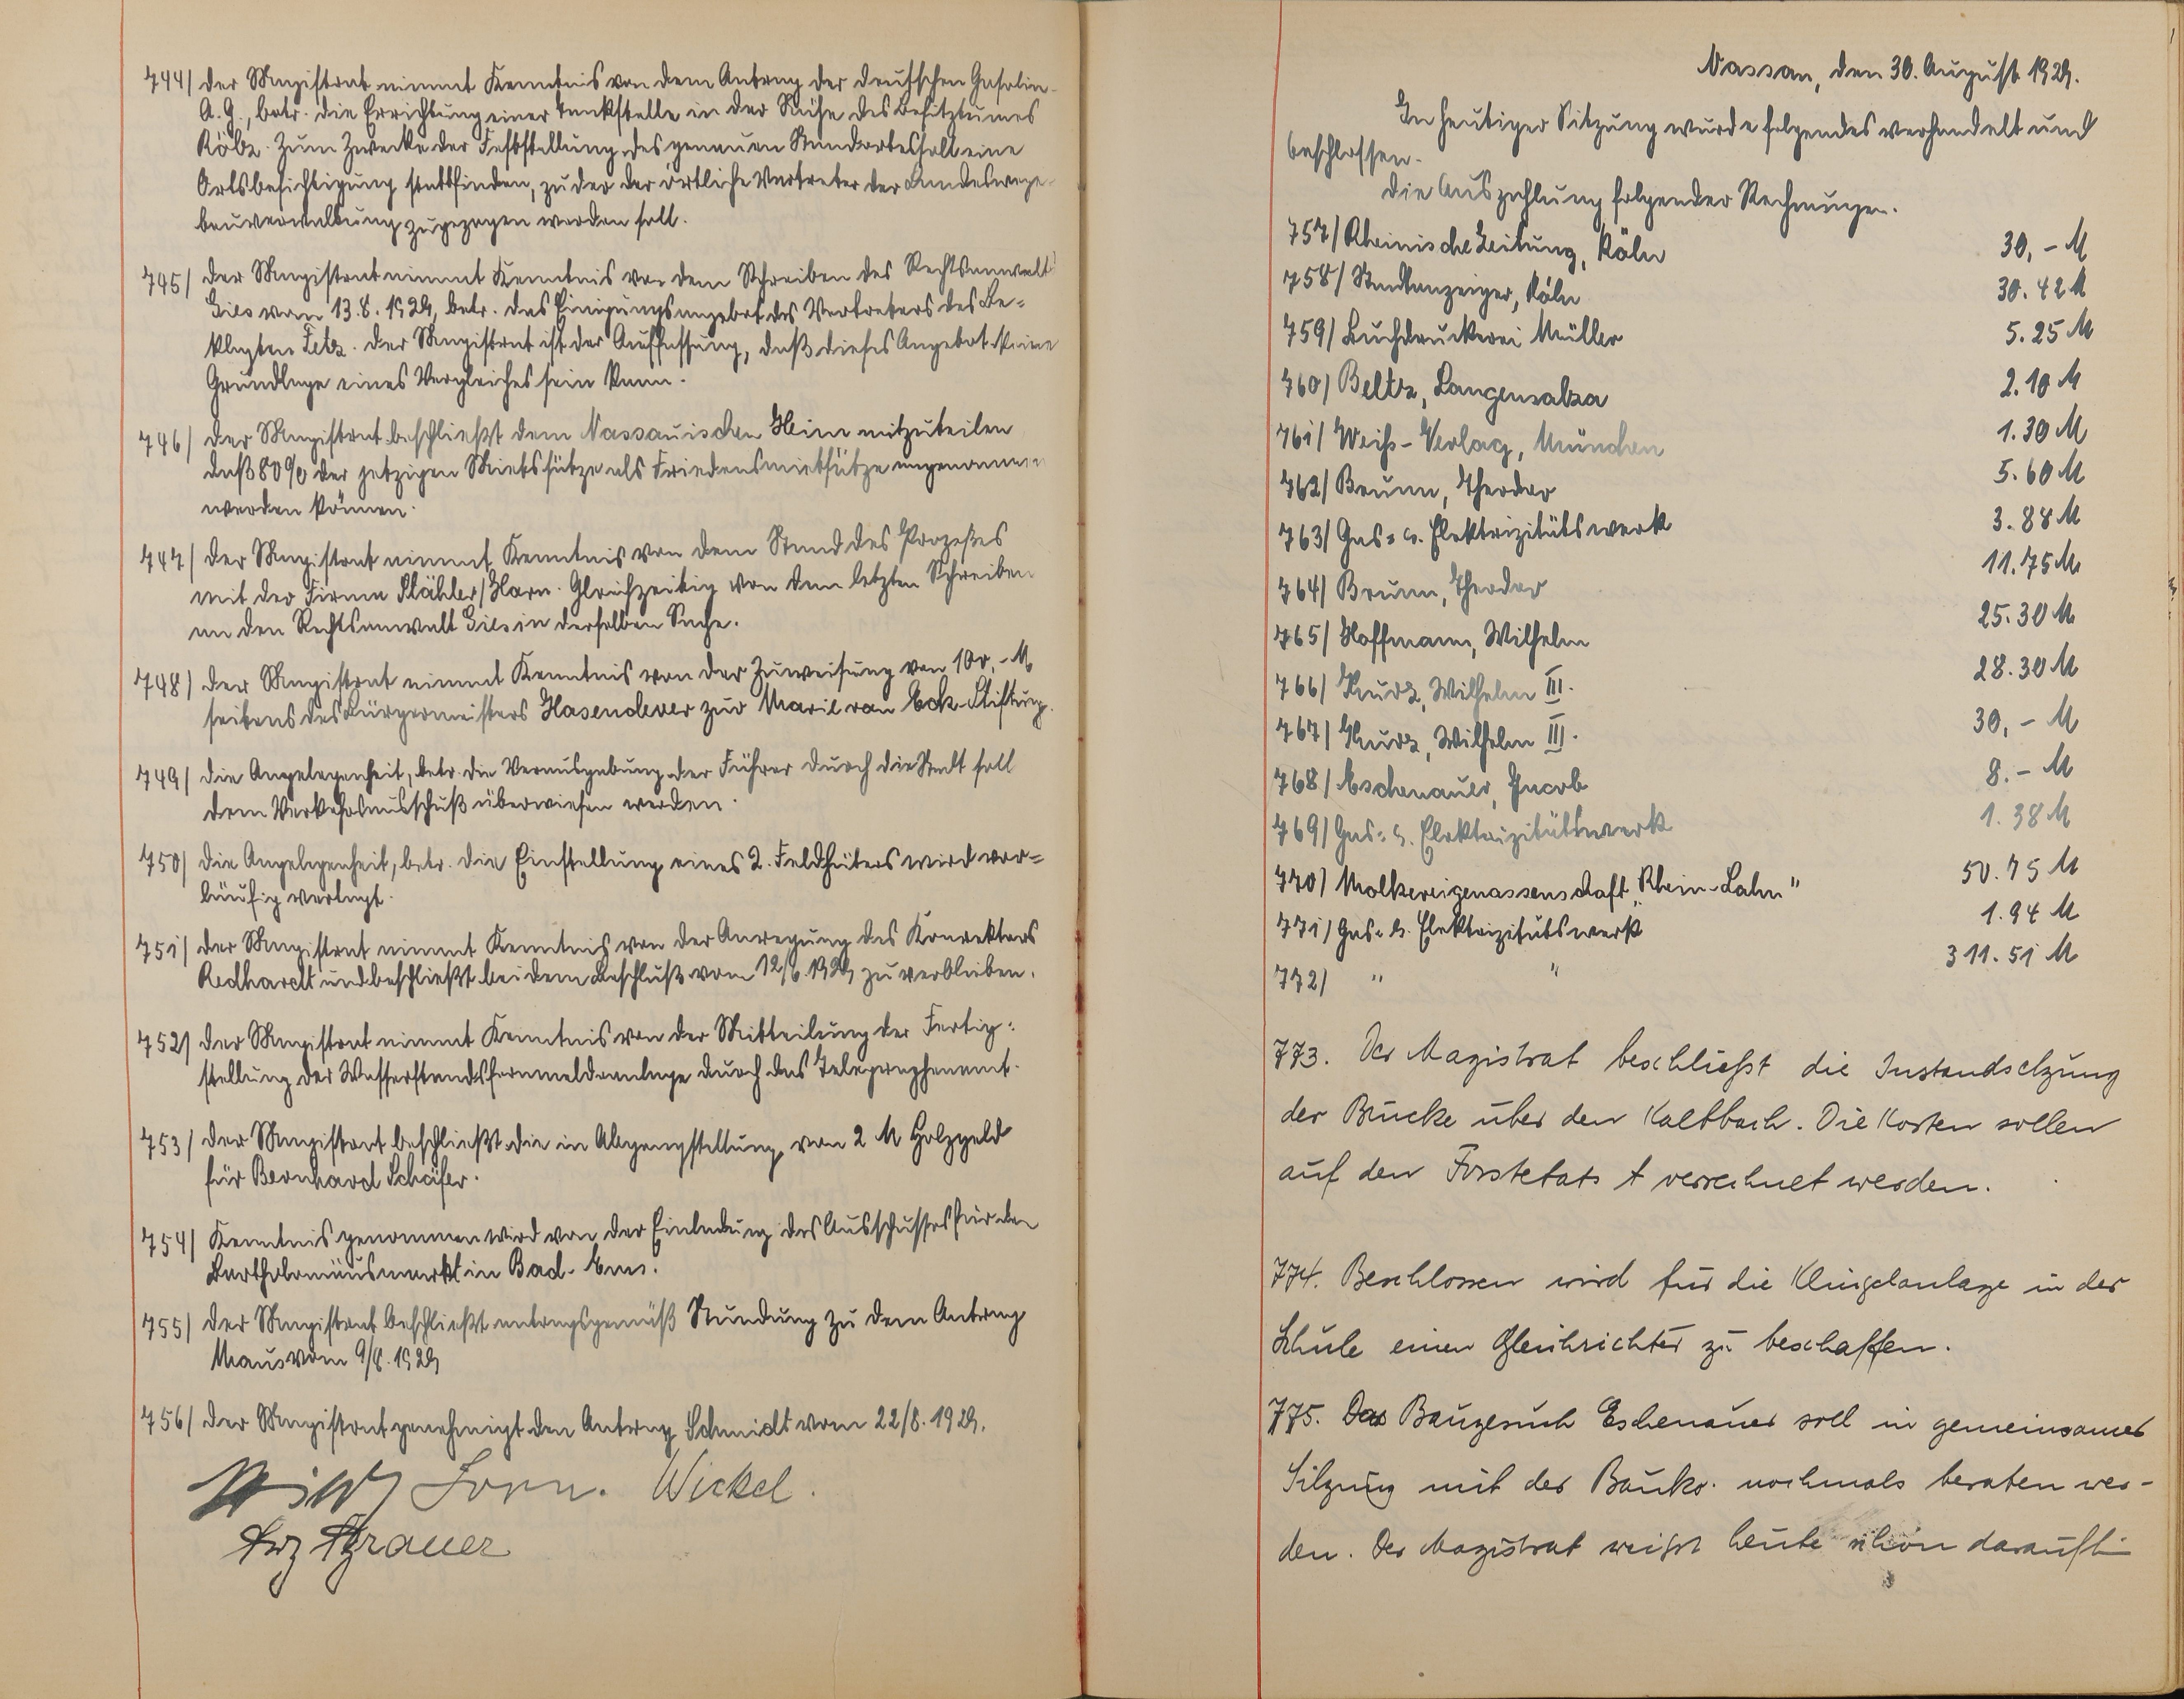 744/ Der Magistrat nimmt Kenntnis von dem Antrag der Deutschen Gasolin-
A.G., betr. die Errichtung einer Tankstelle in der Nähe des Besitztumes
Köbz. Zum Zwecke der Feststellung des genauen Standortes soll eine
Ortsbesichtigung stattfinden, zu der der örtliche Vertreter der Landeswege-
bauverwaltung zugezogen werden soll.
745/ Der Magistrat nimmt Kenntnis von dem Schreiben des Rechtsanwalts
Gies vom 13.8.1929, betr. das Einigungsangebot des Vertreters des Be-
klagten Fetz. Der Magistrat ist der Auffassung, daß dieses Angebot keine
Grundlage eines Vergleiches sein kann.
746/ Der Magistrat beschließt dem Nassauischen Heim mitzuteilen
daß 80% der jetzigen Mietssätze als Friedensmietsätze angenommen
werden können.
747/ Der Magistrat nimmt Kenntnis von dem Stand des Prozeßes
mit der Firma Stähler/Horn. Gleichzeitig von dem letzten Schreiben
an den Rechtsanwalt Gies in derselben Sache.
748/ Der Magistrat nimmt Kenntnis von der Zuweisung von 100,- M
seitens des Bürgermeisters Hasenclever zur Marie van Eck-Stiftung.
749/ Die Angelegenheit, betr. die Verausgabung der Führer durch die Stadt soll
dem Verkehrsausschuß überwiesen werden.
750/ Die Angelegenheit, betr. die Einstellung eines 2. Feldhüters wird vor-
läufig vertagt.
751/ Der Magistrat nimmt Kenntnis von der Anregung des Konrektors
Redhardt und beschließt bei dem Beschluß vom 12/6.1929 zu verbleiben.
752/ Der Magistrat nimmt Kenntnis von der Mitteilung der Fertig-
stellung der Wasserstandsfernmeldeanlage durch das Telegraphenamt.
753/ Der Magistrat beschließt die in Abgangstellung von 2 M Holzgeld
für Bernhard Schäfer.
754/ Kenntnis genommen wird von der Einladung des Ausschusses für den
Bartholomäusmarkt in Bad-Ems.
755/ Der Magistrat beschließt antragsgemäß Stundung zu dem Antrag
Maus vom 9/8.1929
756/ Der Magistrat genehmigt den Antrag Schmidt vom 22/8.1929.
Wickel.
Nassau, den 30. August 1929.
In heutiger Sitzung wurde folgendes verhandelt und
beschlossen.
Die Auszahlung folgender Rechnungen.
757/ Rheinische Zeitung, Köln 30,- M
758/ Stadtanzeiger, Köln 30.42 M
759/ Buchdruckerei Müller 5.25 M
760/ Beltz, Langensalza 2.10 M
761/ Weiß-Verlag, München 1.30 M
762/ Brunn, Theodor 5.60 M
763/ Gas- u. Elektrizitätswerk 3.88 M
764/ Brunn, Theodor 11.75 M
765/ Hoffmann, Wilhelm 25.30 M
766/ Kurz, Wilhelm III. 28.30 M
767/ Kurz, Wilhelm III. 30,- M
768/ Eschenauer, Jacob 8.- M
769/ Gas- u. Elektrizitätswerk 1.38 M
770/ Molkereigenossenschaft „Rhein-Lahn" 50.75 M
771/ Gas- u. Elektrizitätswerk 1.94 M
772/ " " 311.51 M
773. Der Magistrat beschließt die Instandsetzung
der Brücke über den Kaltbach. Die Kosten sollen
auf den Forstetats t verrechnet werden.
774. Beschlossen wird für die Klingelanlage in der
Schule einen Gleichrichter zu beschaffen.
775. Das Baugesuch Eschenauer soll in gemeinsamer
Sitzung mit der Bauko. nochmals beraten wer-
den. Der Magistrat weißt heute schon darauf hin